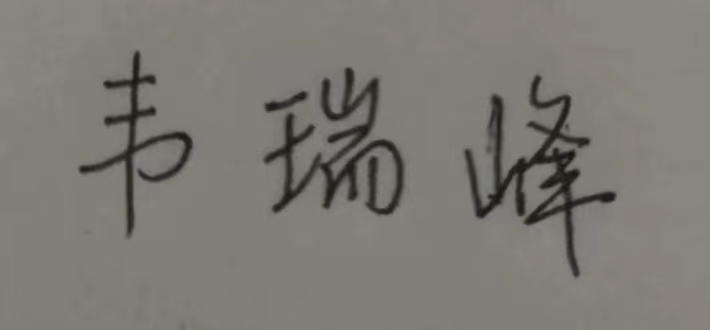 韦瑞峰